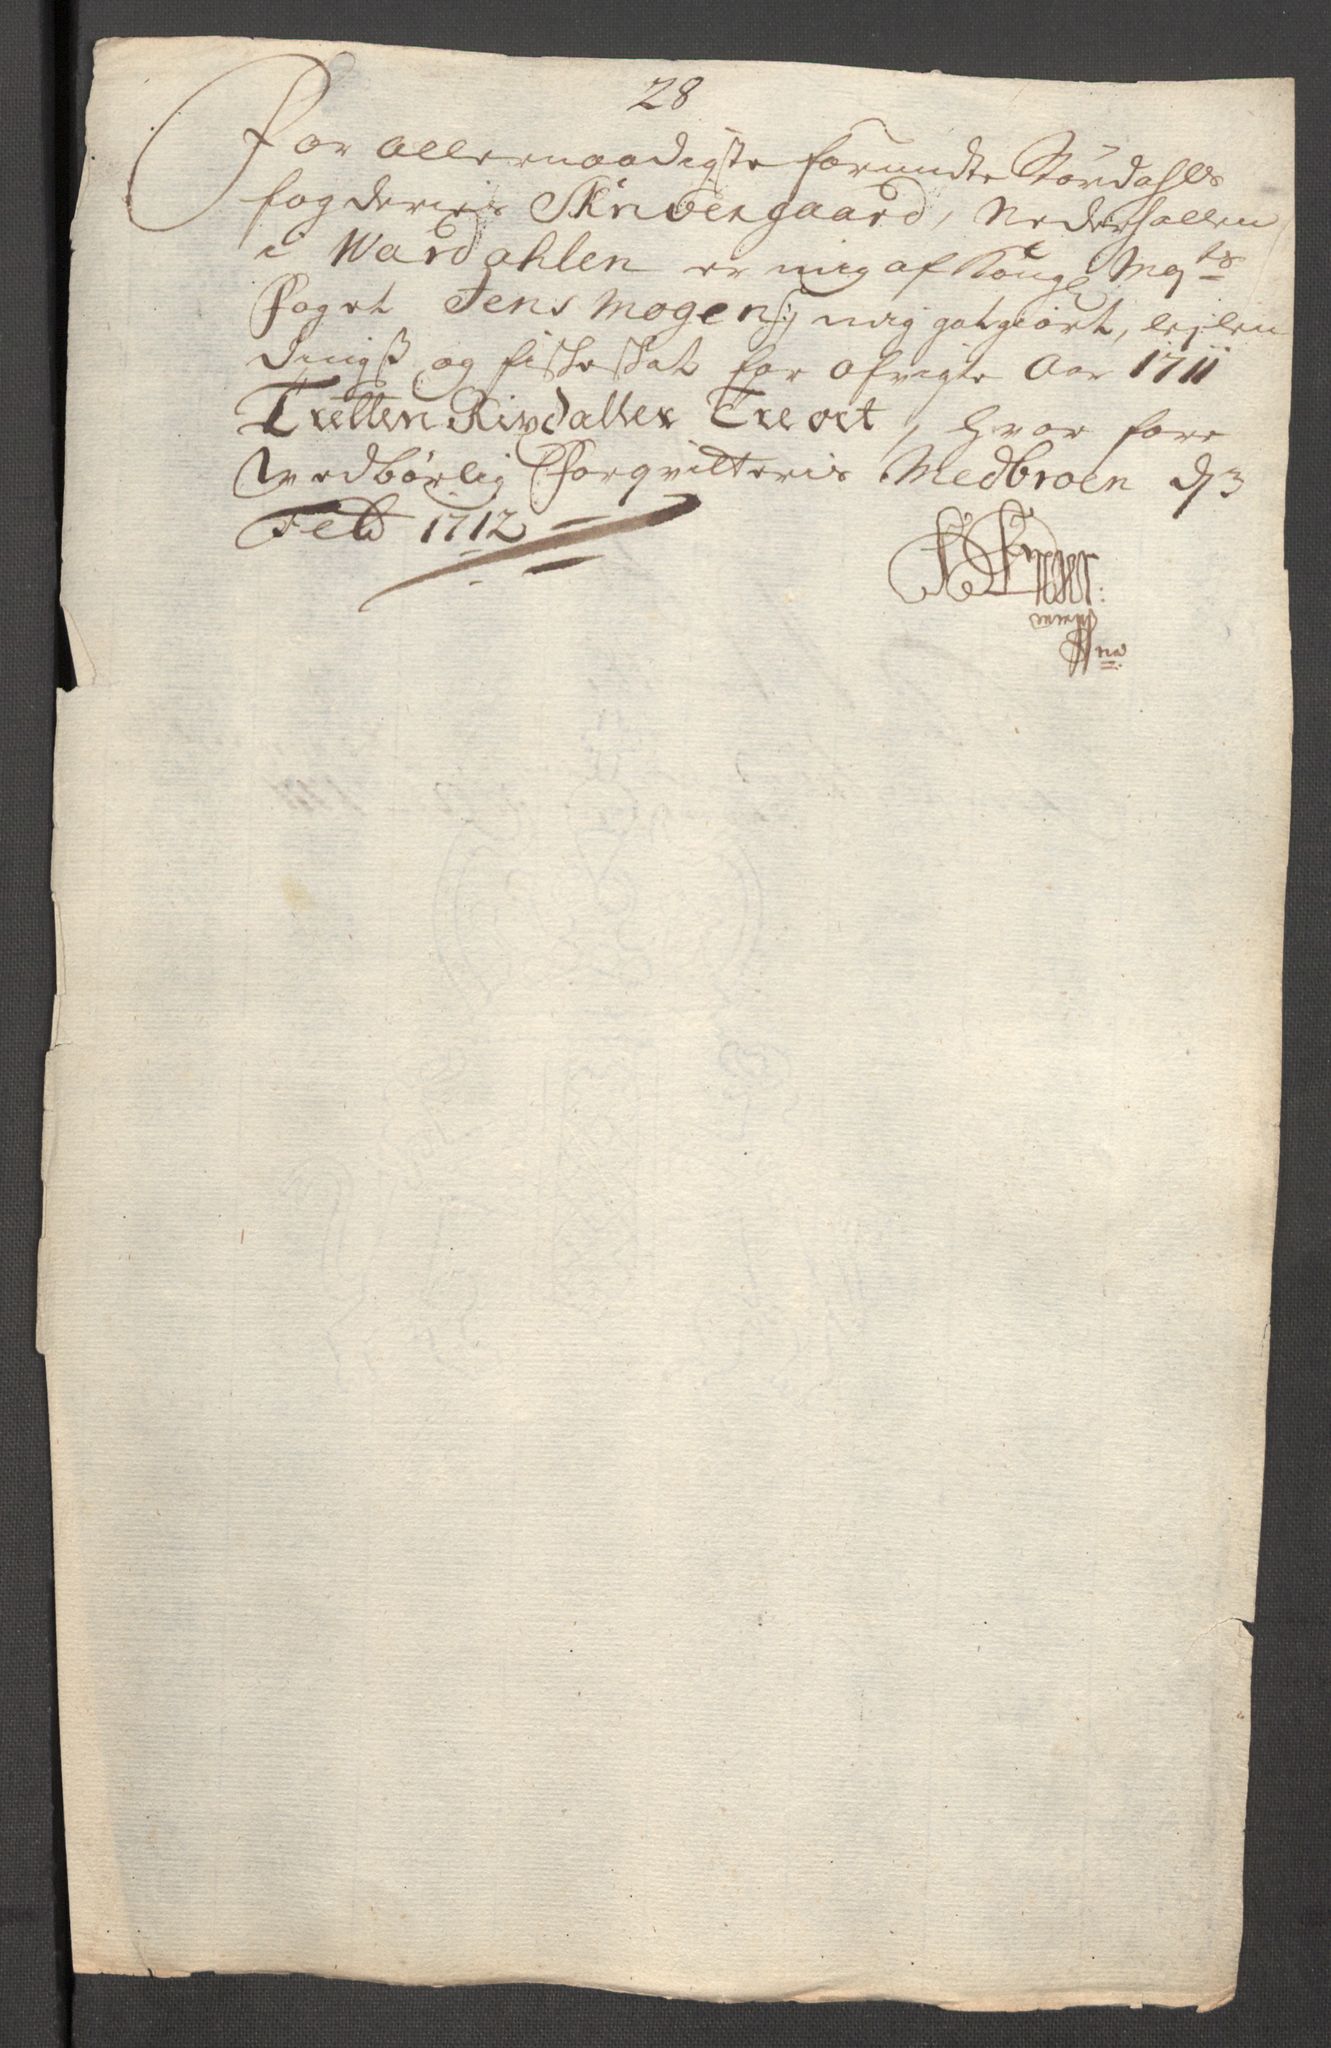 28
For allernaadigste forundte Størdahls
fogderies Skriversgaard, Nederhallen
i Wardahlen er mig af Kongl Mayts
Foget Jens Mogens: mig gotgiort, leylen
dings og fiskeskat for afvigte Aar 1711
Tretten Rixdaller Tre ort, hvor fore
vedbørlig Forqvitteris Medbroen d 3
Feb 1712